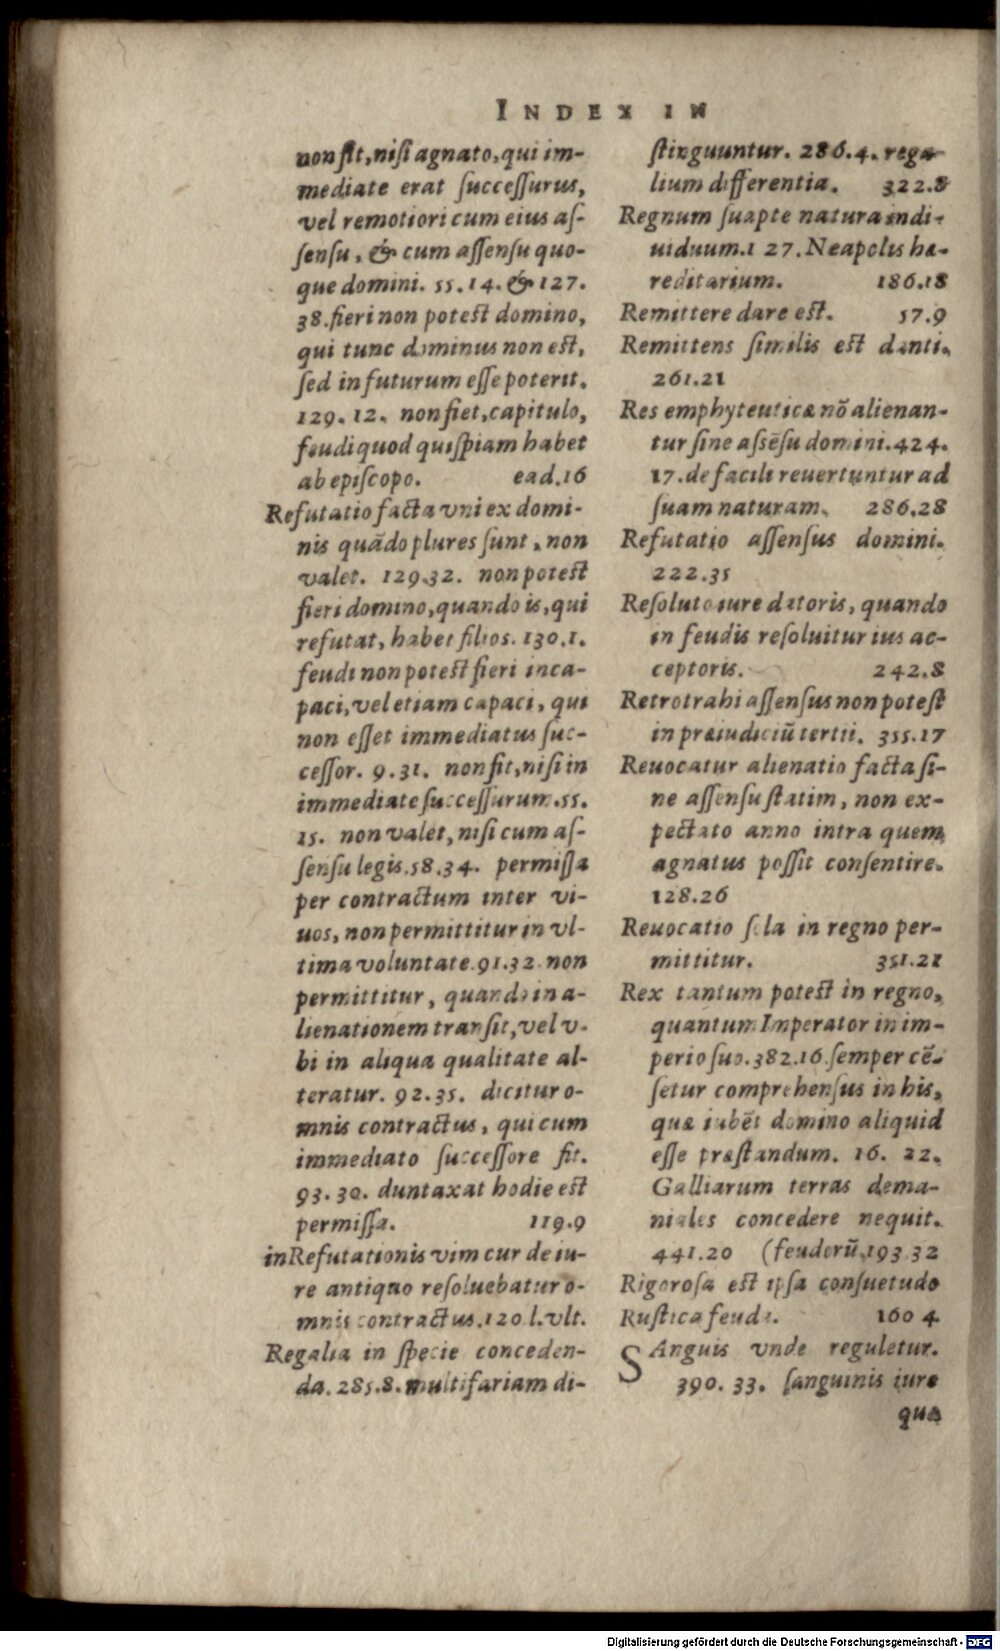 INDEX IN
non fit, nisi agnato, qui im-
mediate erat successurus,
vel remotiori cum eius as-
sensu, & cum assensu quo-
que domini. 55.14. & 127.
38. fieri non potest domino,
qui tunc dominus non est,
sed in futurum esse poterit.
129. 12. non fiet, capitulo,
feudi quod quispiam habet
ab episcopo. ead.16
Refutatio facta vni ex domi-
nis quãdo plures sunt, non
valet. 129.32. non potest
fieri domino, quando is, qui
refutat, habet filios. 130.1.
feudi non potest fieri inca-
paci, vel etiam capaci, qui
non esset immediatus suc-
cessor. 9.31. non fit, nisi in
immediate successurum. 55.
15. non valet, nisi cum as-
sensu legis. 58.34. permissa
per contractum inter vi-
uos, non permittitur in vl-
tima voluntate. 91.32. non
permittitur, quando in a-
lienationem transit, vel v-
bi in aliqua qualitate al-
teratur. 92.35. dicitur o-
mnis contractus, qui cum
immediato successore fit.
93.30. duntaxat hodie est
permissa. 119.9
in Refutationis vim cur de iu-
re antiquo resoluebatur o-
mnis contractus. 120 l. vlt.
Regalia in specie conceden-
da. 285.8. multifariam di-
stinguuntur. 286.4. rega-
lium differentia. 322.8
Regnum suapte natura indi-
uiduum. 127. Neapolis hæ-
reditarium. 186.18
Remittere dare est. 57.9
Remittens similis est danti.
261.21
Res emphyteuticæ nõ alienan-
tur sine assẽsu domini. 424.
17. de facili reuertuntur ad
suam naturam. 286.28
Refutatio assensus domini.
222.35
Resoluto iure datoris, quando
in feudis resoluitur ius ac-
ceptoris. 242.8
Retrotrahi assensus non potest
in præiudiciũ tertii. 355.17
Reuocatur alienatio facta si-
ne assensu statim, non ex-
pectato anno intra quem
agnatus possit consentire.
128.26
Reuocatio sola in regno per-
mittitur. 351.21
Rex tantum potest in regno,
quantum Imperator in im-
perio suo. 382.16. semper cẽ-
setur comprehensus in his,
quæ iubẽt domino aliquid
esse præstandum. 16. 22.
Galliarum terras dema-
niales concedere nequit.
441.20 (feudorũ. 193 32
Rigorosa est ipsa consuetudo
Rustica feuda. 160 4
SAnguis vnde reguletur.
390. 33. sanguinis iure
quæ
Digitalisierung gefördert durch die Deutsche Forschungsgemeinschaft - DFG